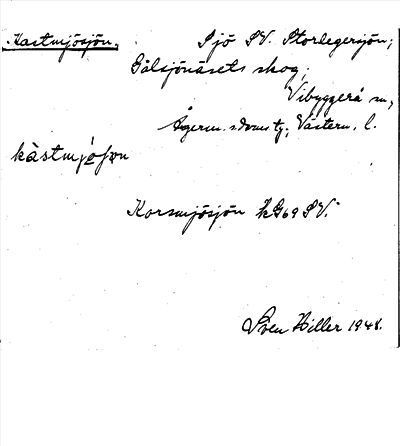 Kastmjösjön.
Sjö SV. Stordegersjön;
Gålsjönäsets skog,
Vibyggerå sn,
Ångerm. s. domstg; Västern. l.
kàstmjösɷn
Korsmjösjön KG69 SV.
Sven Hiller 1948.